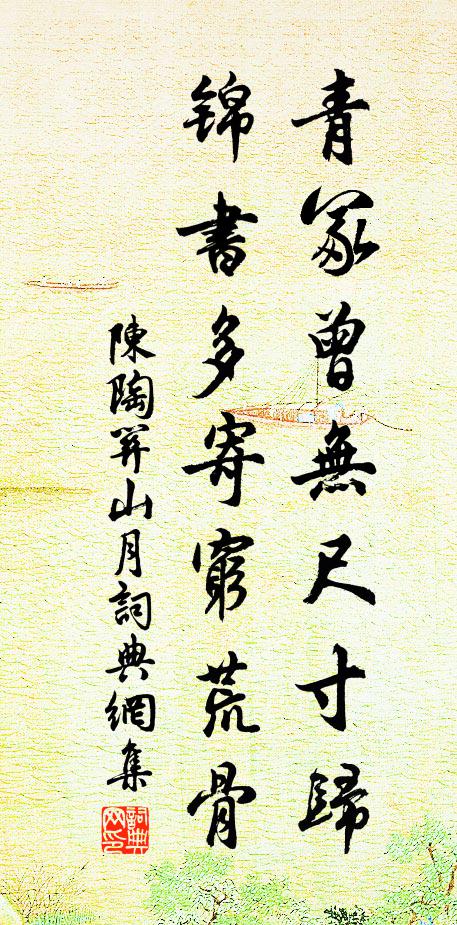 青冢曾無尺寸歸
錦書多寄窮荒骨
陳陶關山月詞典網集
詞典網印